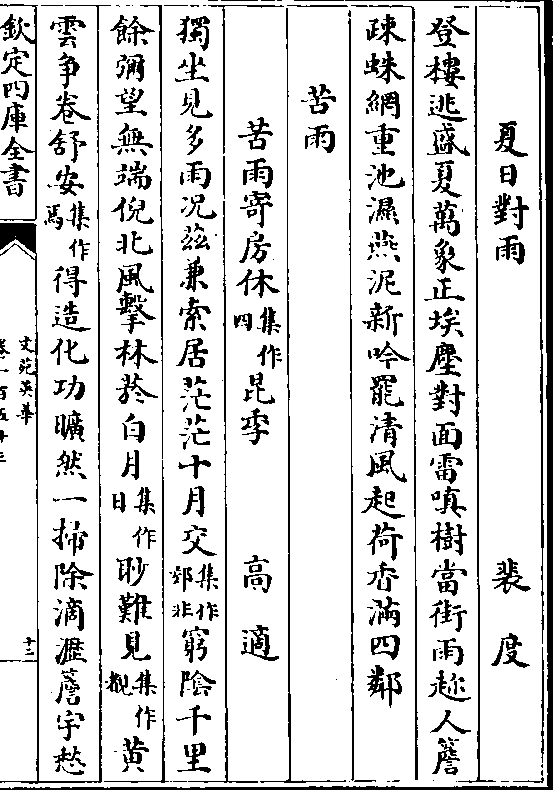 夏日對雨　裴度
登樓逃盛夏萬象正埃塵對面雷嗔樹當街雨趂人簷
疎蛛網重池濕燕泥新吟罷清風起荷香滿四鄰
苦雨
苦雨寄房休集作四昆季　高適
獨坐見多雨况茲兼索居茫茫十月交集作郊非窮陰千里
餘彌望無端倪北風擊林菸白月集作日眇難見集作覩黄
雲争卷舒安集作焉得造化功曠然一掃除滴瀝簷宇愁
欽定四庫全書
文苑英華
卷一百五十三
十二